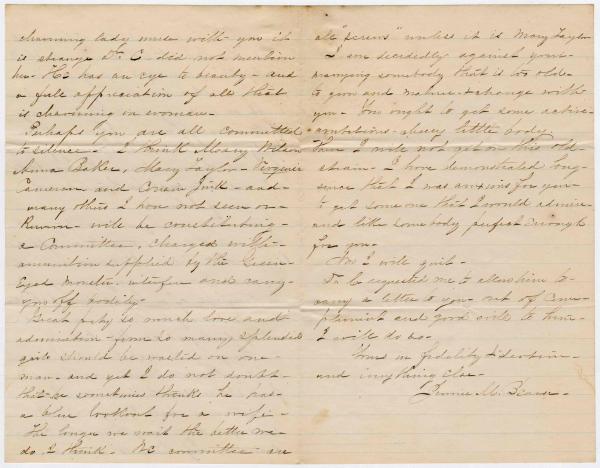 charming lady move with you it
is strange Dr C did not mention
her. He has an eye to beauty - and
a full appreciation of all that
is charming in woman -
Perhaps you are all committed
to silence - I think Moary Wilson
Anna Baker, Mary Taylor - Virginia
Cameron and - and -
many others I have not seen or -
- will be constituting -
a Committee, charged with -
ammunition supplied by the Green
Eyed Monster, interfere and carry -
you off bodily -
Great pity so much love and
admiration - from so many splendid
girls should be wasted on one -
man - and yet I do not doubt -
that he sometimes thinks he has -
a blue lookout for a wife -
The longer we wait the better we -
do I think. We committee are
all "screws" unless it is Mary Taylor
I am decidedly against your -
marrying somebody that is too old -
to grow and mature & change with
you - You ought to get some active -
ambitious - cheery little body
Now I will not on this old -
strain - I have demonstrated long -
since that I was anxious for you -
to get some one that I would admire -
and like somebody perfect enough
for you -
No I will quit -
Dr C requested me to allow him to -
carry a letter to you - out of com-
pliment and good will to him -
I will do so -
Yours in fidelity & devotion -
and everything else -
Jennie M.